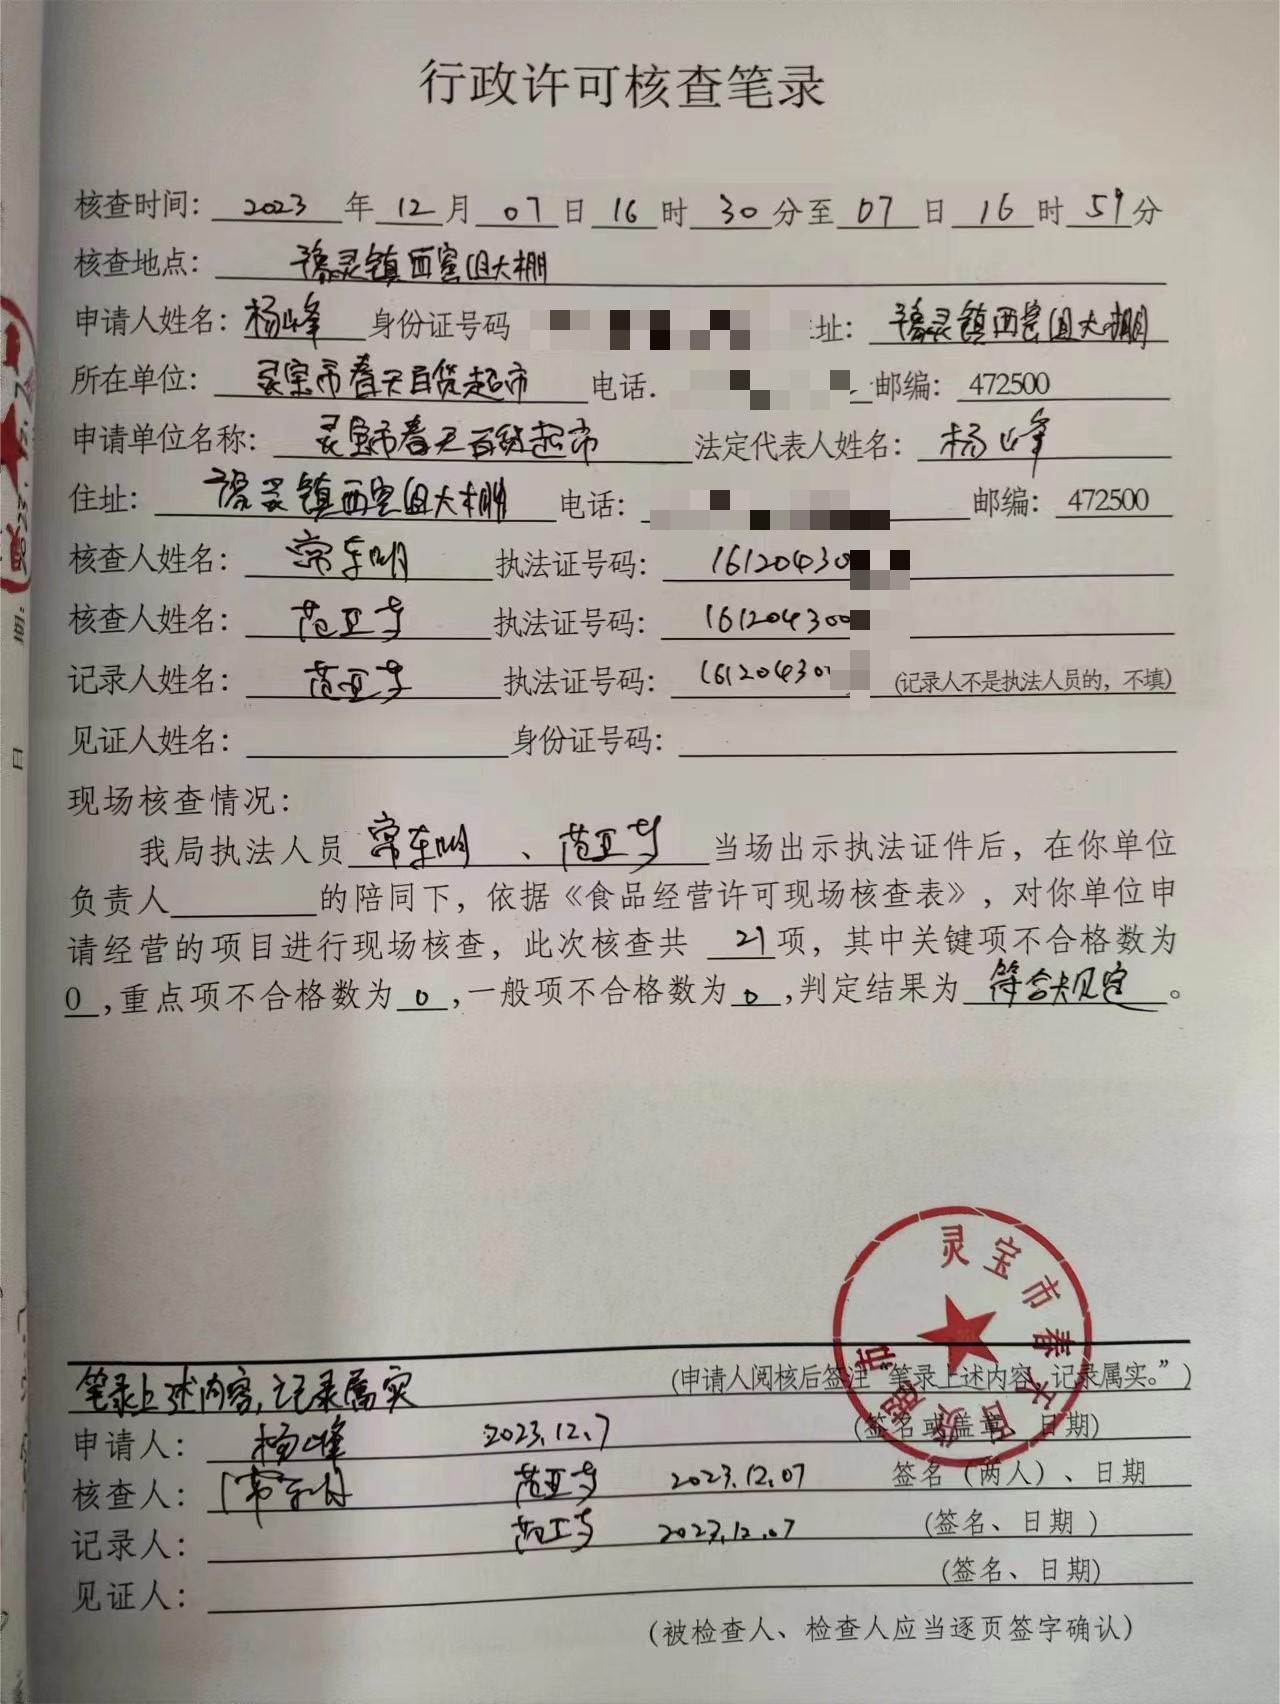 行政许可核查笔录
核查时间：2023年12月07日16时30分至07日16时59分
核查地点：豫灵镇西寨组大棚
申请人姓名：杨峰 身份证号码 址：豫灵镇西寨组大棚
所在单位：灵宝市春天百货超市 电话. 邮编：472500
申请单位名称：灵宝市春天百货超市 法定代表人姓名：杨峰
住址：豫灵镇西寨组大棚 电话： 邮编：472500
核查人姓名：常东明 执法证号码：161204300
核查人姓名：范亚 执法证号码：161204300
记录人姓名：范亚 执法证号码：16120430 (记录人不是执法人员的，不填)
见证人姓名： 身份证号码：
现场核查情况：
我局执法人员常东明、范亚 当场出示执法证件后，在你单位
负责人 的陪同下，依据《食品经营许可现场核查表》，对你单位申
请经营的项目进行现场核查，此次核查共 21项，其中关键项不合格数为
0,重点项不合格数为0,一般项不合格数为0,判定结果为 符合规定。
灵宝市春天百货超市
笔录上述内容，记录属实 (申请人阅核后签注“笔录上述内容，记录属实。”)
申请人：杨峰 2023.12.7 (签名或盖章、日期)
核查人：常东明 范亚 2023.12.07 签名（两人）、日期
记录人： 范亚 2023.12.07 (签名、日期)
见证人： (签名、日期)
(被检查人、检查人应当逐页签字确认)